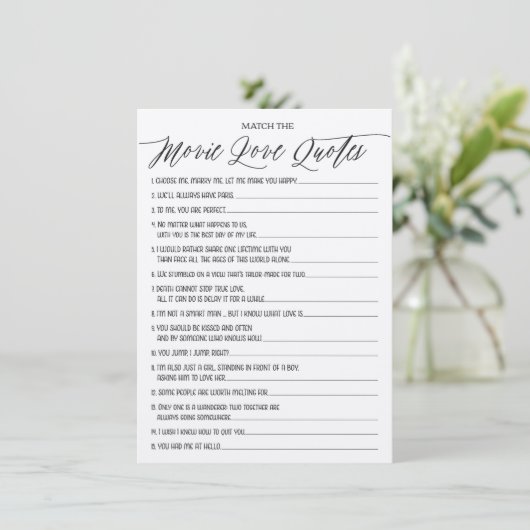 MATCH THE
Movie Love Quotes
1. CHOOSE ME, MARRY ME, LET ME MAKE YOU HAPPY.
2. WE'LL ALWAYS HAVE PARIS.
3. TO ME, YOU ARE PERFECT.
4. NO MATTER WHAT HAPPENS TO US,
WITH YOU IS THE BEST DAY OF MY LIFE.
5. I WOULD RATHER SHARE ONE LIFETIME WITH YOU
THAN FACE ALL THE AGES OF THIS WORLD ALONE.
6. WE STUMBLED ON A VIEW THAT'S TAILOR-MADE FOR TWO.
7. DEATH CANNOT STOP TRUE LOVE,
ALL IT CAN DO IS DELAY IT FOR A WHILE.
8. I'M NOT A SMART MAN ... BUT I KNOW WHAT LOVE IS.
9. YOU SHOULD BE KISSED AND OFTEN
AND BY SOMEONE WHO KNOWS HOW.
10. YOU JUMP, I JUMP, RIGHT?
11. I'M ALSO JUST A GIRL, STANDING IN FRONT OF A BOY,
ASKING HIM TO LOVE HER.
12. SOME PEOPLE ARE WORTH MELTING FOR.
13. ONLY ONE IS A WANDERER; TWO TOGETHER ARE
ALWAYS GOING SOMEWHERE.
14. I WISH I KNEW HOW TO QUIT YOU.
15. YOU HAD ME AT HELLO.